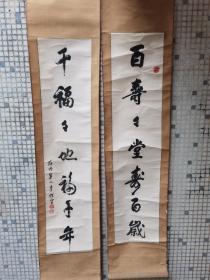 百壽々堂壽百歲
千福々地福千年